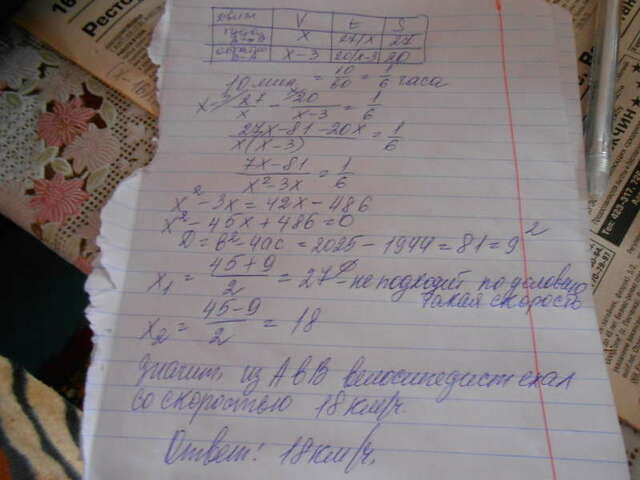 V t S
туда А→В x 27/x 27
обратно В→А x-3 20/x-3 20
10 мин = 10/60 = 1/6 часа
27/x - 20/x-3 = 1/6
27x-81-20x/x(x-3) = 1/6
7x-81/x²-3x = 1/6
x²-3x=42x-486
x²-45x+486=0
D=в²-4ac = 2025-1944=81=9²
x₁ = 45+9/2 = 27 - не подходит по условию такая скорость
x₂ = 45-9/2 = 18
Значит, из А в В велосипедист ехал
со скоростью 18 км/ч.
Ответ: 18 км/ч.